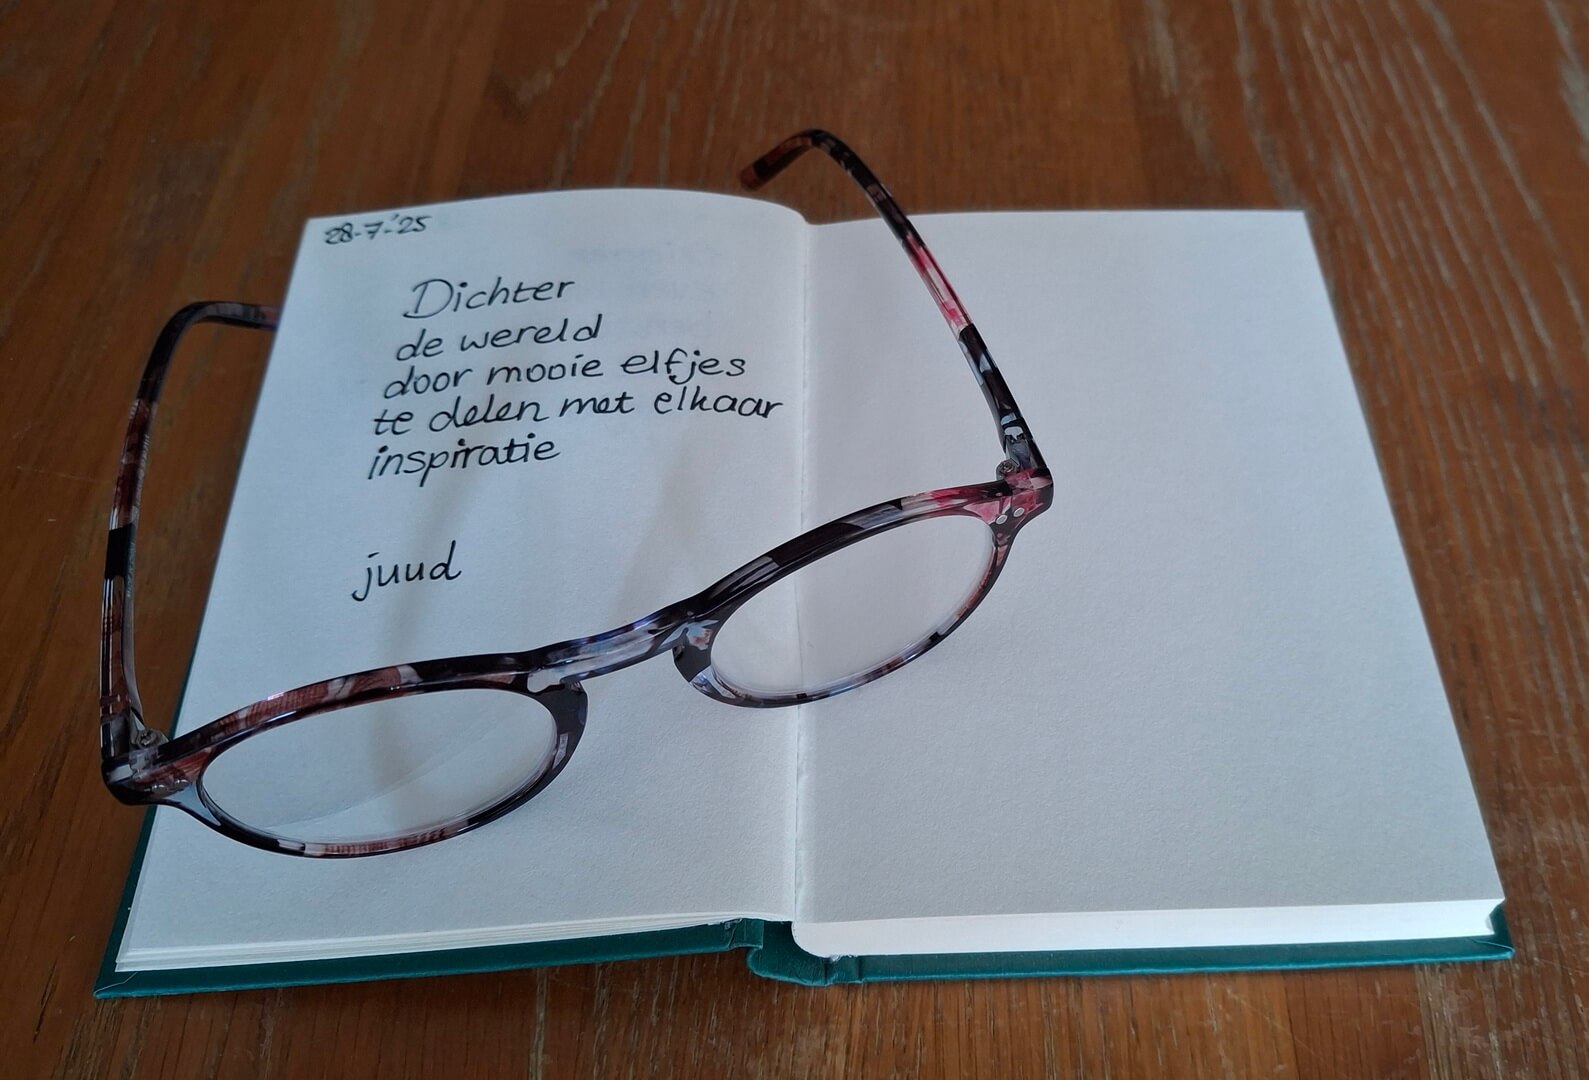 28-7-'25
Dichter
de wereld
door mooie elfjes
te delen met elkaar
inspiratie
juud